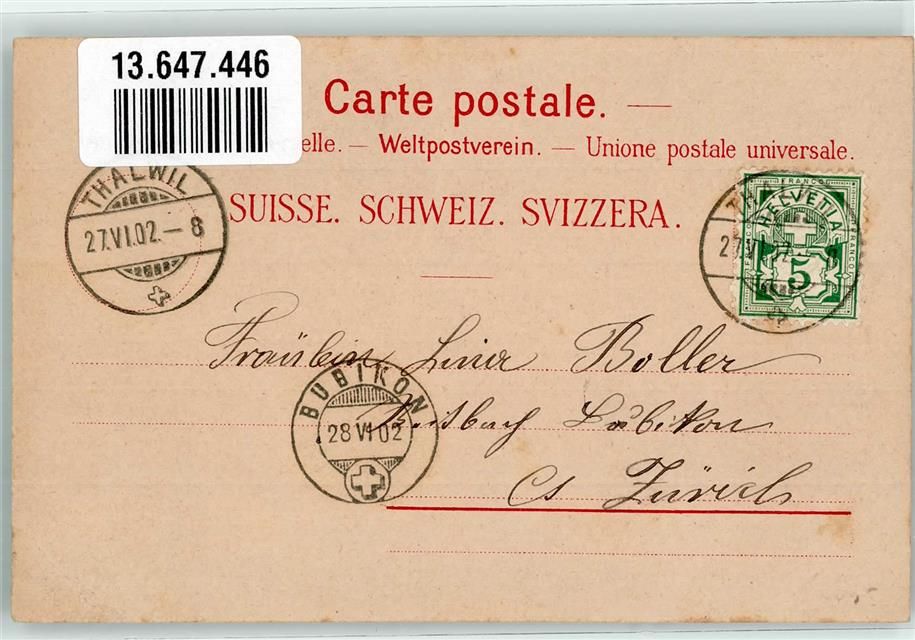 13.647.446
Carte postale. —
elle. — Weltpostverein. — Unione postale universale.
THALWIL
27.VI.02.–8
SUISSE. SCHWEIZ. SVIZZERA.
FRANCO
HELVETIA
FRANCO
5
TH
27.VI.02.–8
Fräulein Lina Boller
Bubikon
Ct Zürich
BUBIKON
28 VI 02